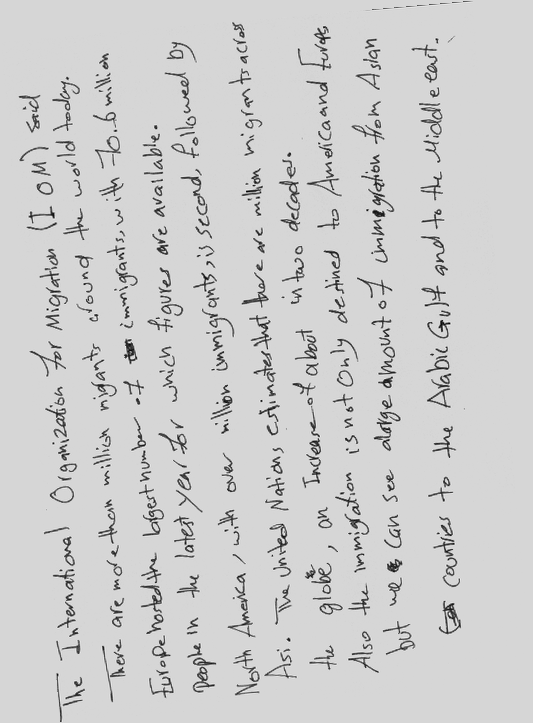 The International Organization for Migration (IOM) said
There are more than million migrants around the world today.
Europe hosted the largest number of immigrants, with 70.6 million
people in the latest year for which figures are available.
North America, with over million immigrants, is second, followed by
Asi. The United Nations estimates that there are million migrants across
the globe, an Increase of about in two decades.
Also the immigration is not Only destined to America and Europe
but we can see alarge amount of immigration from Asian
countries to the Arabic Gulf and to the Middle east.